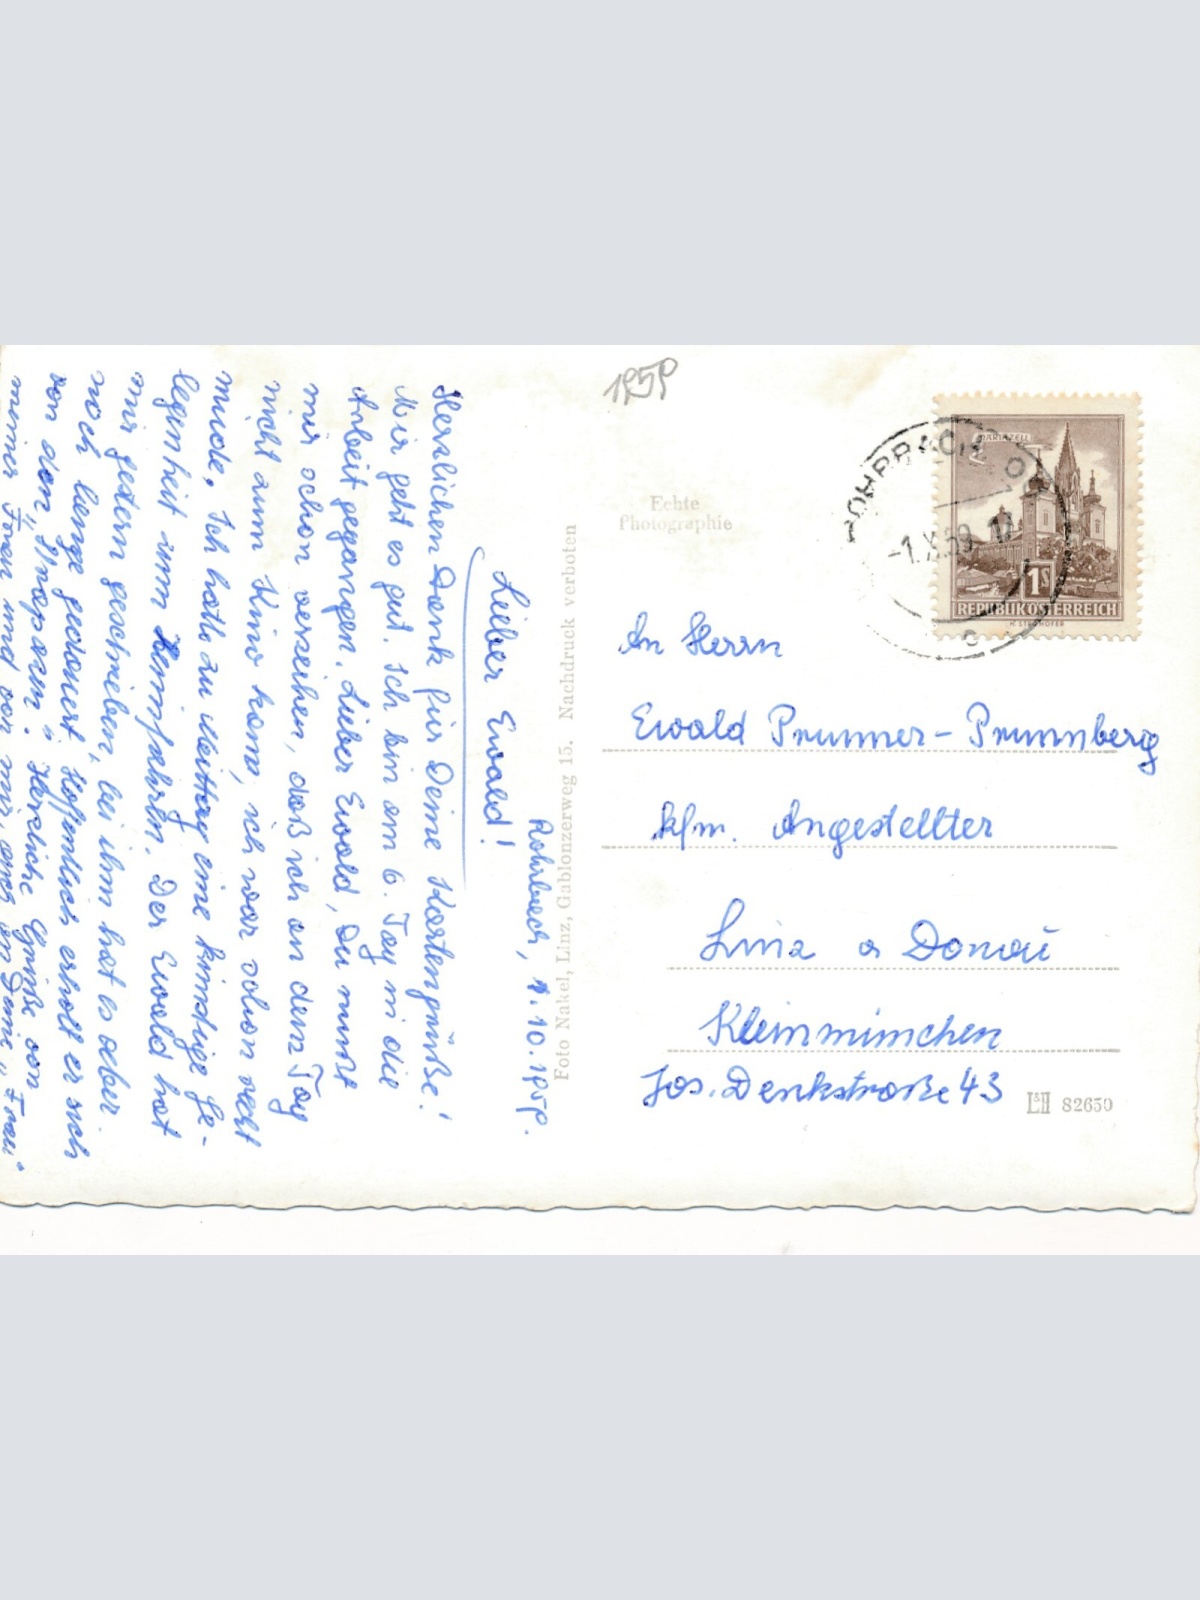 1959
Rohrbach, 1.10.1959.
Lieber Ewald!
Herzlichen Dank für Deine Kartengrüße!
Mir geht es gut. Ich bin am 6. Tag in die
Arbeit gegangen. Lieber Ewald, Du mußt
mir schon verzeihen, daß ich an dem Tag
nicht zum Kino kam, ich war schon recht
müde. Ich hatte zu Mittag eine kindige Ge-
legenheit zum Heimfahren. Der Ewald hat
mir gestern geschrieben, bei ihm hat es aber
noch lange gedauert. Hoffentlich erholt er sich
von den Herzliche Grüße von
meiner Frau und von mir, auch an Deine "Frau"
Echte
Photographie
Foto Nakel, Linz, Gablonzerweg 15. Nachdruck verboten
MARIAZELL
1S
REPUBLIK ÖSTERREICH
H. STROHOFER
ROHRBACH, O
-1.X.59
c
An Herrn
Ewald Prunner-Prunnberg
kfm. Angestellter
Linz a Donau
Kleinmünchen
Jos. Denkstraße 43
82650